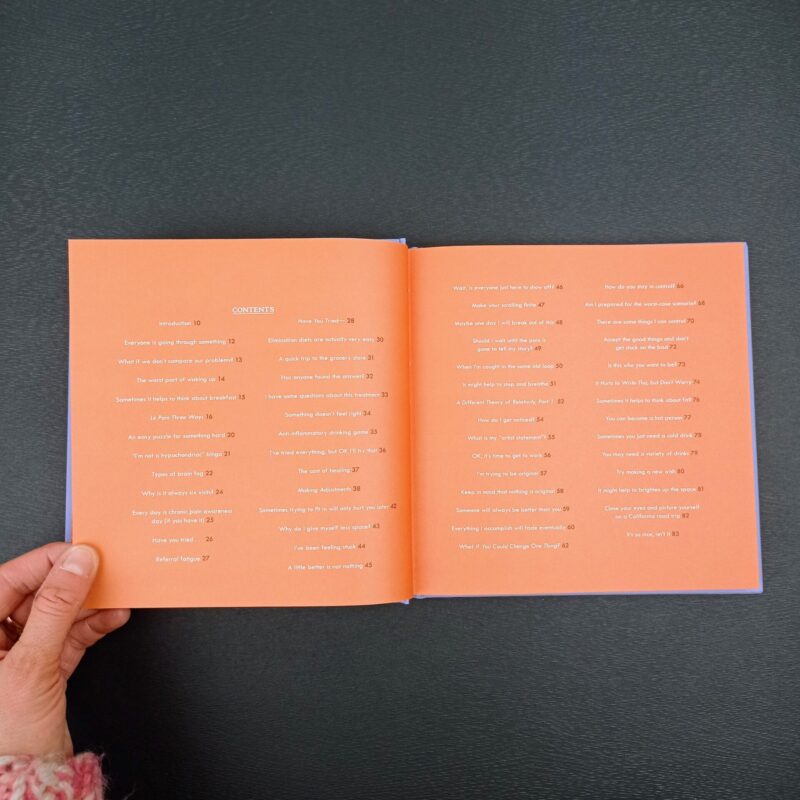 CONTENTS
Introduction 10
Everyone is going through something 12
What if we don't compare our problems? 13
The worst part of waking up 14
Sometimes it helps to think about breakfast 15
Le Pain Three Ways 16
An easy puzzle for something hard 20
"I'm not a hypochondriac" bingo 21
Types of brain fog 22
Why is it always six vials? 24
Every day is chronic pain awareness
day (if you have it) 25
Have you tried . . . 26
Referral fatigue 27
Have You Tried— 28
Elimination diets are actually very easy 30
A quick trip to the grocery store 31
Has anyone found the answer? 32
I have some questions about this treatment 33
Something doesn't feel right 34
Anti-inflammatory drinking game 35
I've tried everything, but OK I'll try that 36
The cost of healing 37
Making Adjustments 38
Sometimes trying to fit in will only hurt you later 42
Why do I give myself less space? 43
I've been feeling stuck 44
A little better is not nothing 45
Wait, is everyone just here to show off? 46
Make your scrolling finite 47
Maybe one day I will break out of this 48
Should I wait until the pain is
gone to tell my story? 49
When I'm caught in the same old loop 50
It might help to stop and breathe 51
A Different Theory of Relativity, Part 1 52
How do I get noticed? 54
What is my "artist statement"? 55
OK, it's time to get to work 56
I'm trying to be original 57
Keep in mind that nothing is original 58
Someone will always be better than you 59
Everything I accomplish will fade eventually 60
What If You Could Change One Thing? 62
How do you stay in control? 66
Am I prepared for the worst-case scenario? 68
There are some things I can control 70
Accept the good things and don't
get stuck on the bad 72
Is this who you want to be? 73
It Hurts to Write This, but Don't Worry 74
Sometimes it helps to think about fall 76
You can become a hot person 77
Sometimes you just need a cold drink 78
You may need a variety of drinks 79
Try making a new wish 80
It might help to brighten up the space 81
Close your eyes and picture yourself
on a California road trip 82
It's so nice, isn't it 83